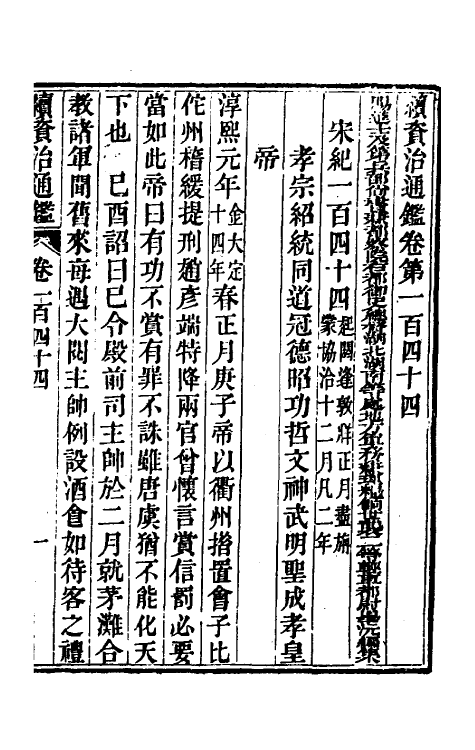 續資治通鑑卷第一百四十四
宋紀一百四十四起閼逢敦牂正月盡旃蒙協洽十二月凡二年
孝宗紹統同道冠德昭功哲文神武明聖成孝皇
帝
淳熙元年金大定十四年春正月庚子帝以衢州措置會子比
佗州稽緩提刑趙彥端特降兩官曾懷言賞信罰必要
當如此帝曰有功不賞有罪不誅雖唐虞猶不能化天
下也　己酉詔曰已令殿前司主帥於二月就茅灘合
教諸軍閒舊來每遇大閱主帥例設酒食如待客之禮
續資治通鑑　卷一百四十四　一